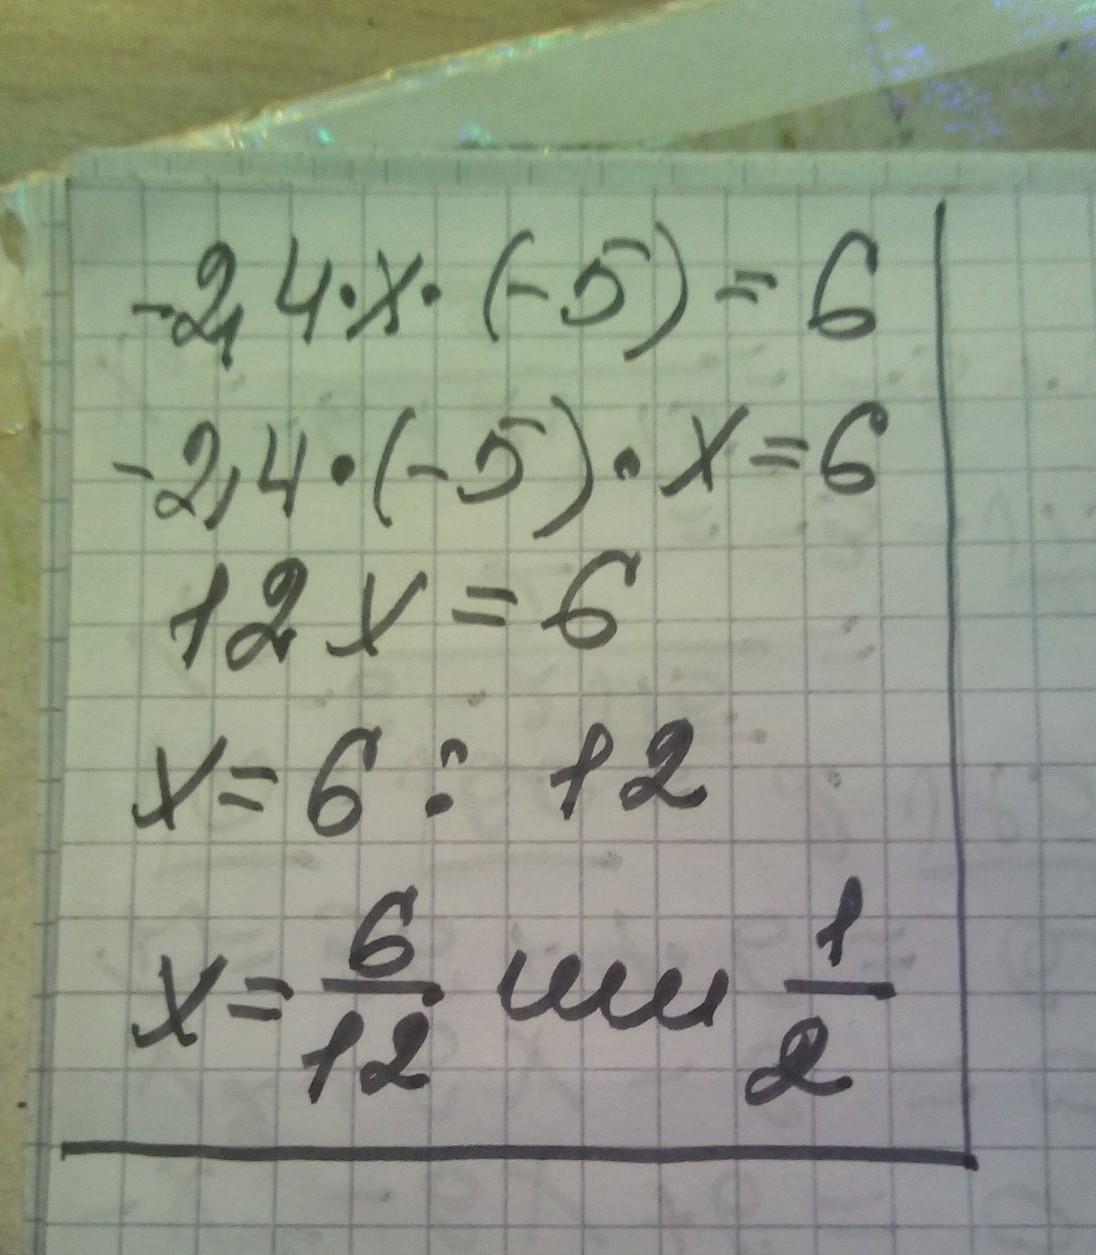 -2,4·x·(-5)=6
-2,4·(-5)·x=6
12x=6
x=6:12
x=6/12 или 1/2